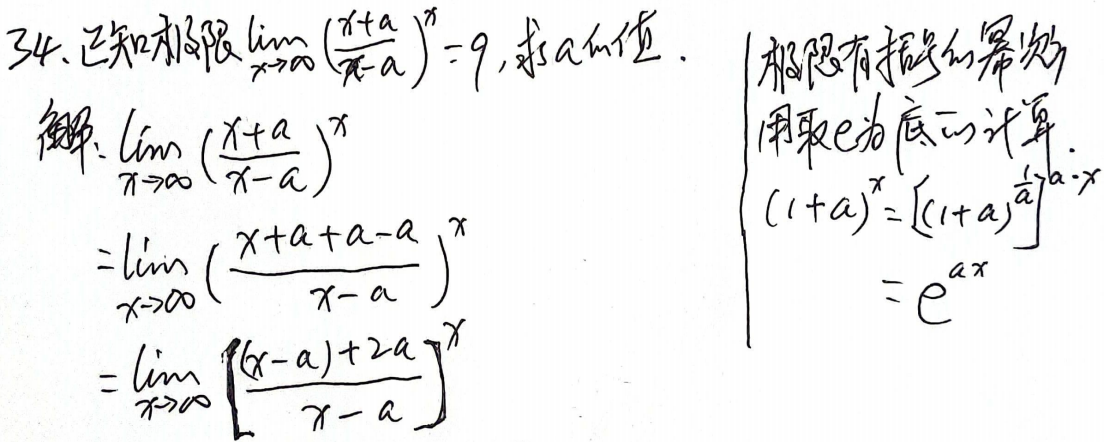 34、已知极限 lim_{x→∞} ((x+a)/(x-a))^x = 9, 求a的值.
解: lim_{x→∞} ((x+a)/(x-a))^x
= lim_{x→∞} ((x+a+a-a)/(x-a))^x
= lim_{x→∞} [((x-a)+2a)/(x-a)]^x
极限有括号的幂次
用取e为底的计算.
(1+a)^x = [(1+a)^{1/a}]^{a·x}
= e^{ax}